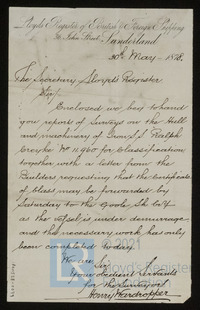 Lloyd's Register of British & Foreign Shipping
John Street, Sunderland
30th May 1878.
The Secretary Lloyds Register
Sir,
Enclosed we beg to hand
you report of Surveys on the Hull
and machinery of Iron S.S. "Ralph
Creyke" No 11960 for Classification
together with a letter from the
Builders requesting that the Certificate
of Class may be forwarded by
Saturday to the Goole Sh Co Ld
as the Vessel is under demurrage
and the necessary work has only
been completed today.
We are Sir
Your obedient servants
for the Surveyors
Henry Wardropper
© 2021
Lloyd's Register